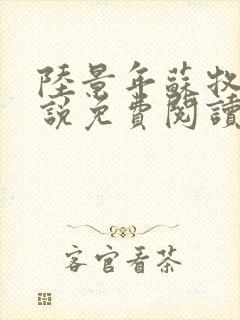 陸景年蘇牧
說免費閱讀
客官看茶